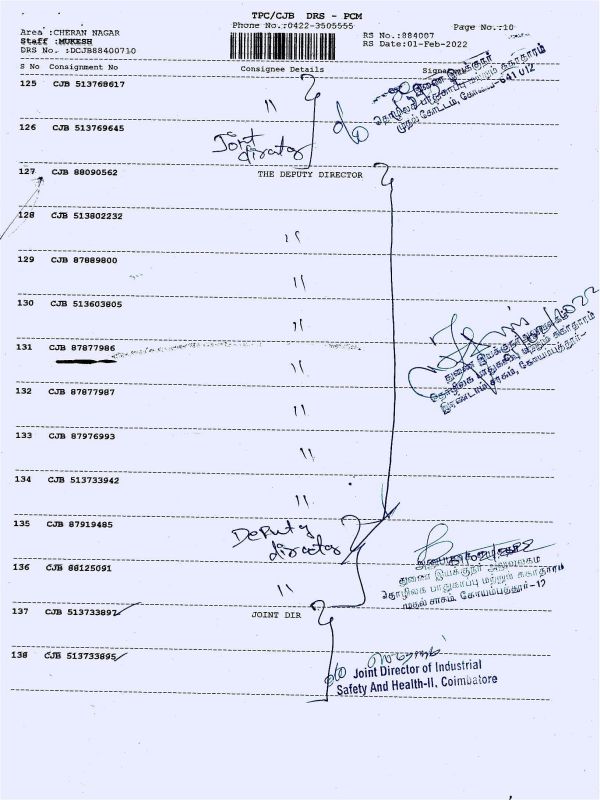 TPC/CJB DRS - PCM
Phone No.:0422-3505555
Page No.:10
Area :CHERAN NAGAR
Staff :MUKESH
DRS No. :DCJB88400710
RS No.:884007
RS Date:01-Feb-2022
S No Consignment No Consignee Details
125 CJB 513768617
"
126 CJB 513769645
Joint
director
127 CJB 88090562 THE DEPUTY DIRECTOR
128 CJB 513802232
"
129 CJB 87889800
"
130 CJB 513603805
"
131 CJB 87877986
"
132 CJB 87877987
"
133 CJB 87976993
"
134 CJB 513733942
"
135 CJB 87919485
Deputy
director
136 CJB 88125091
"
துணை இயக்குநர் அலுவலகம்
தொழிலக பாதுகாப்பு மற்றும் சுகாதாரம்
முதல் சரகம், கோயம்புத்தூர்-12
137 CJB 513733897 JOINT DIR
138 CJB 513733895
Joint Director of Industrial
Safety And Health-II, Coimbatore